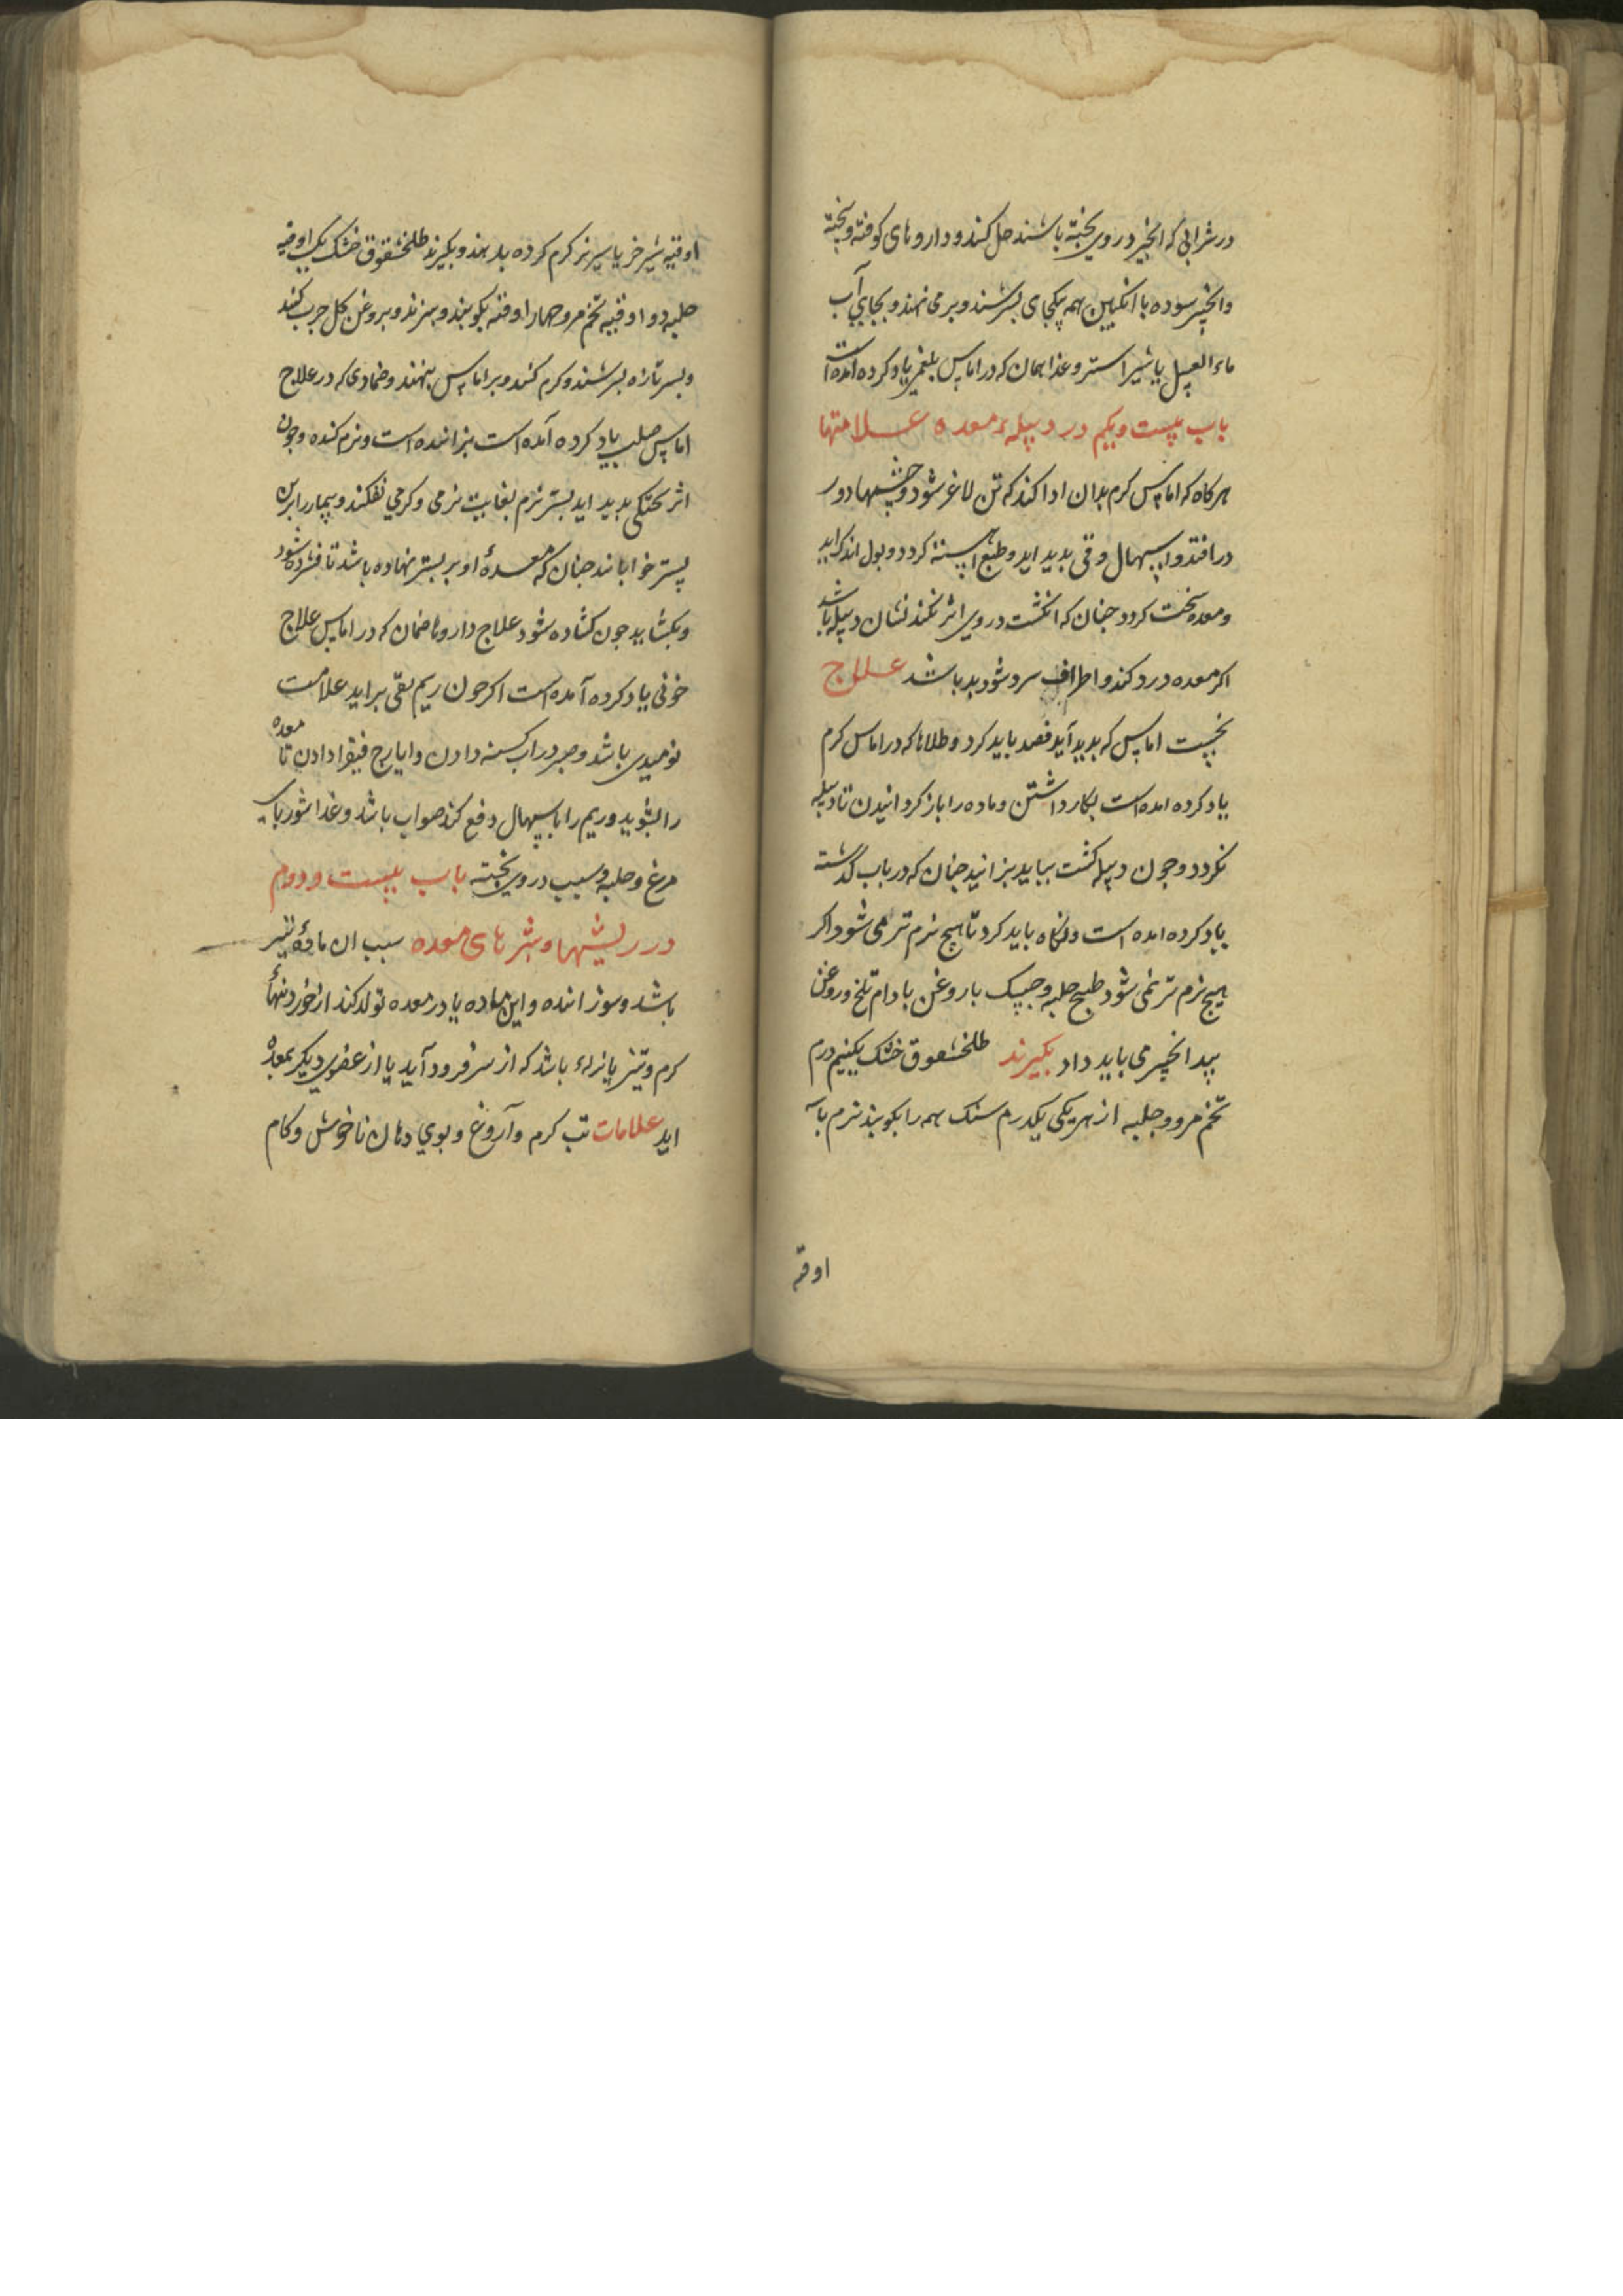 در شرابی که انجیر در وی پخته باشند حل کنند و داروهای کوفته و پخته
و انجیر سوده با انکبین همه بیکجای بسرشند و برمی نهند و بجای آب
ماء العسل یا شیر استر و غذا همان که در اماس بلغمی یاد کرده آمده است
باب بیست و یکم در دبیله معده علامتها
هرکاه که اماس کرم بدان ادا کند که تن لاغر شود و چشمها دور
درافتد و اسهال و قی بدید اید و طبع بسته کردد و بول اندک اید
و معده سخت کردد جنان که انکشت در وی اثر نکند نشان دبیله باشد
اکر معده درد کند و اطراف سرد شود بد باشد علاج
نخست اماس که بدید آید فصد باید کرد و طلاها که در اماس کرم
یاد کرده امده است بکار داشتن و ماده را باز کردانیدن تا دبیله
نکردد و جون دبیله کشت بباید بزانید جنان که در باب کذشته
یاد کرده امده است و نکاه باید کرد تا هیج نرم تر می شود اکر
هیج نرم تر نمی شود طبیخ حلبه و جسک با روغن بادام تلخ و روغن
بید انجیر می باید داد بکیرند طلخشقوق خشک یکنیم درم
تخم مرو و حلبه از هر یکی یکدرم سنک همه را بکوبند نرم با
اوقیه
اوقیه شیر خر یا شیر بز کرم کرده بدهند و بکیرند طلخشقوق خشک یک اوقیه
حلبه دو اوقیه تخم مرو جهار اوقیه بکوبند و ببزند و بروغن کل جرب کنند
و بسر تازه بسرشند و کرم کنند و بر اماس بنهند و ضمادی که در علاج
اماس صلب یاد کرده آمده است بزاننده است و نرم کننده و جون
اثر بختکی بدید اید بستر نرم بغایت نرمی و کرمی بفکنند و بیمار را برین
بستر خوابانند جنان که معده او بر بستر نهاده باشد تا فشرده شود
و بکشاید جون کشاده شود علاج داروها ضمان که در اماس علاج
خونی یاد کرده آمده است اکر خون ریم بقی براید علامت
نومیدی باشد و صبر در اب کسنه دادن و ایارج فیقرا دادن تا معده
را بشوید و ریم را باسهال دفع کند صواب باشد و غذا شوربای
مرغ و حلبه و سبب در وی بخته باب بیست و دوم
در ریشها و بثرهای معده سبب ان ماده تیز
باشد و سوزاننده و این ماده یا در معده تولد کند از خوردنیهاء
کرم و تیز یا نزله باشد که از سر فرود آید یا از عضوی دیکر بمعده
اید علامات تب کرم و آروغ و بوی دهان ناخوش و کام